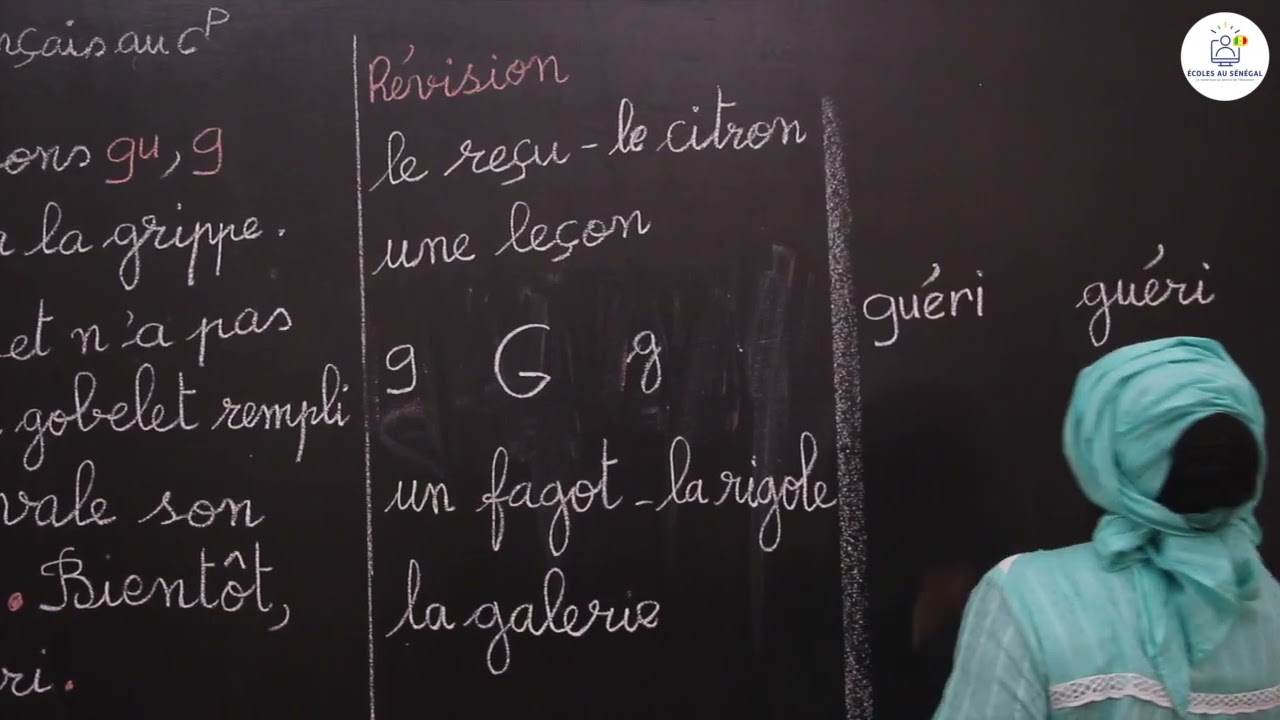 nçais au CP
ons gu, g
a la grippe.
et n'a pas
gobelet rempli
vale son
. Bientôt,
ri.
Révision
le reçu - le citron
une leçon
g G g
un fagot - la rigole
la galerie
guéri guéri
ÉCOLES AU SÉNÉGAL